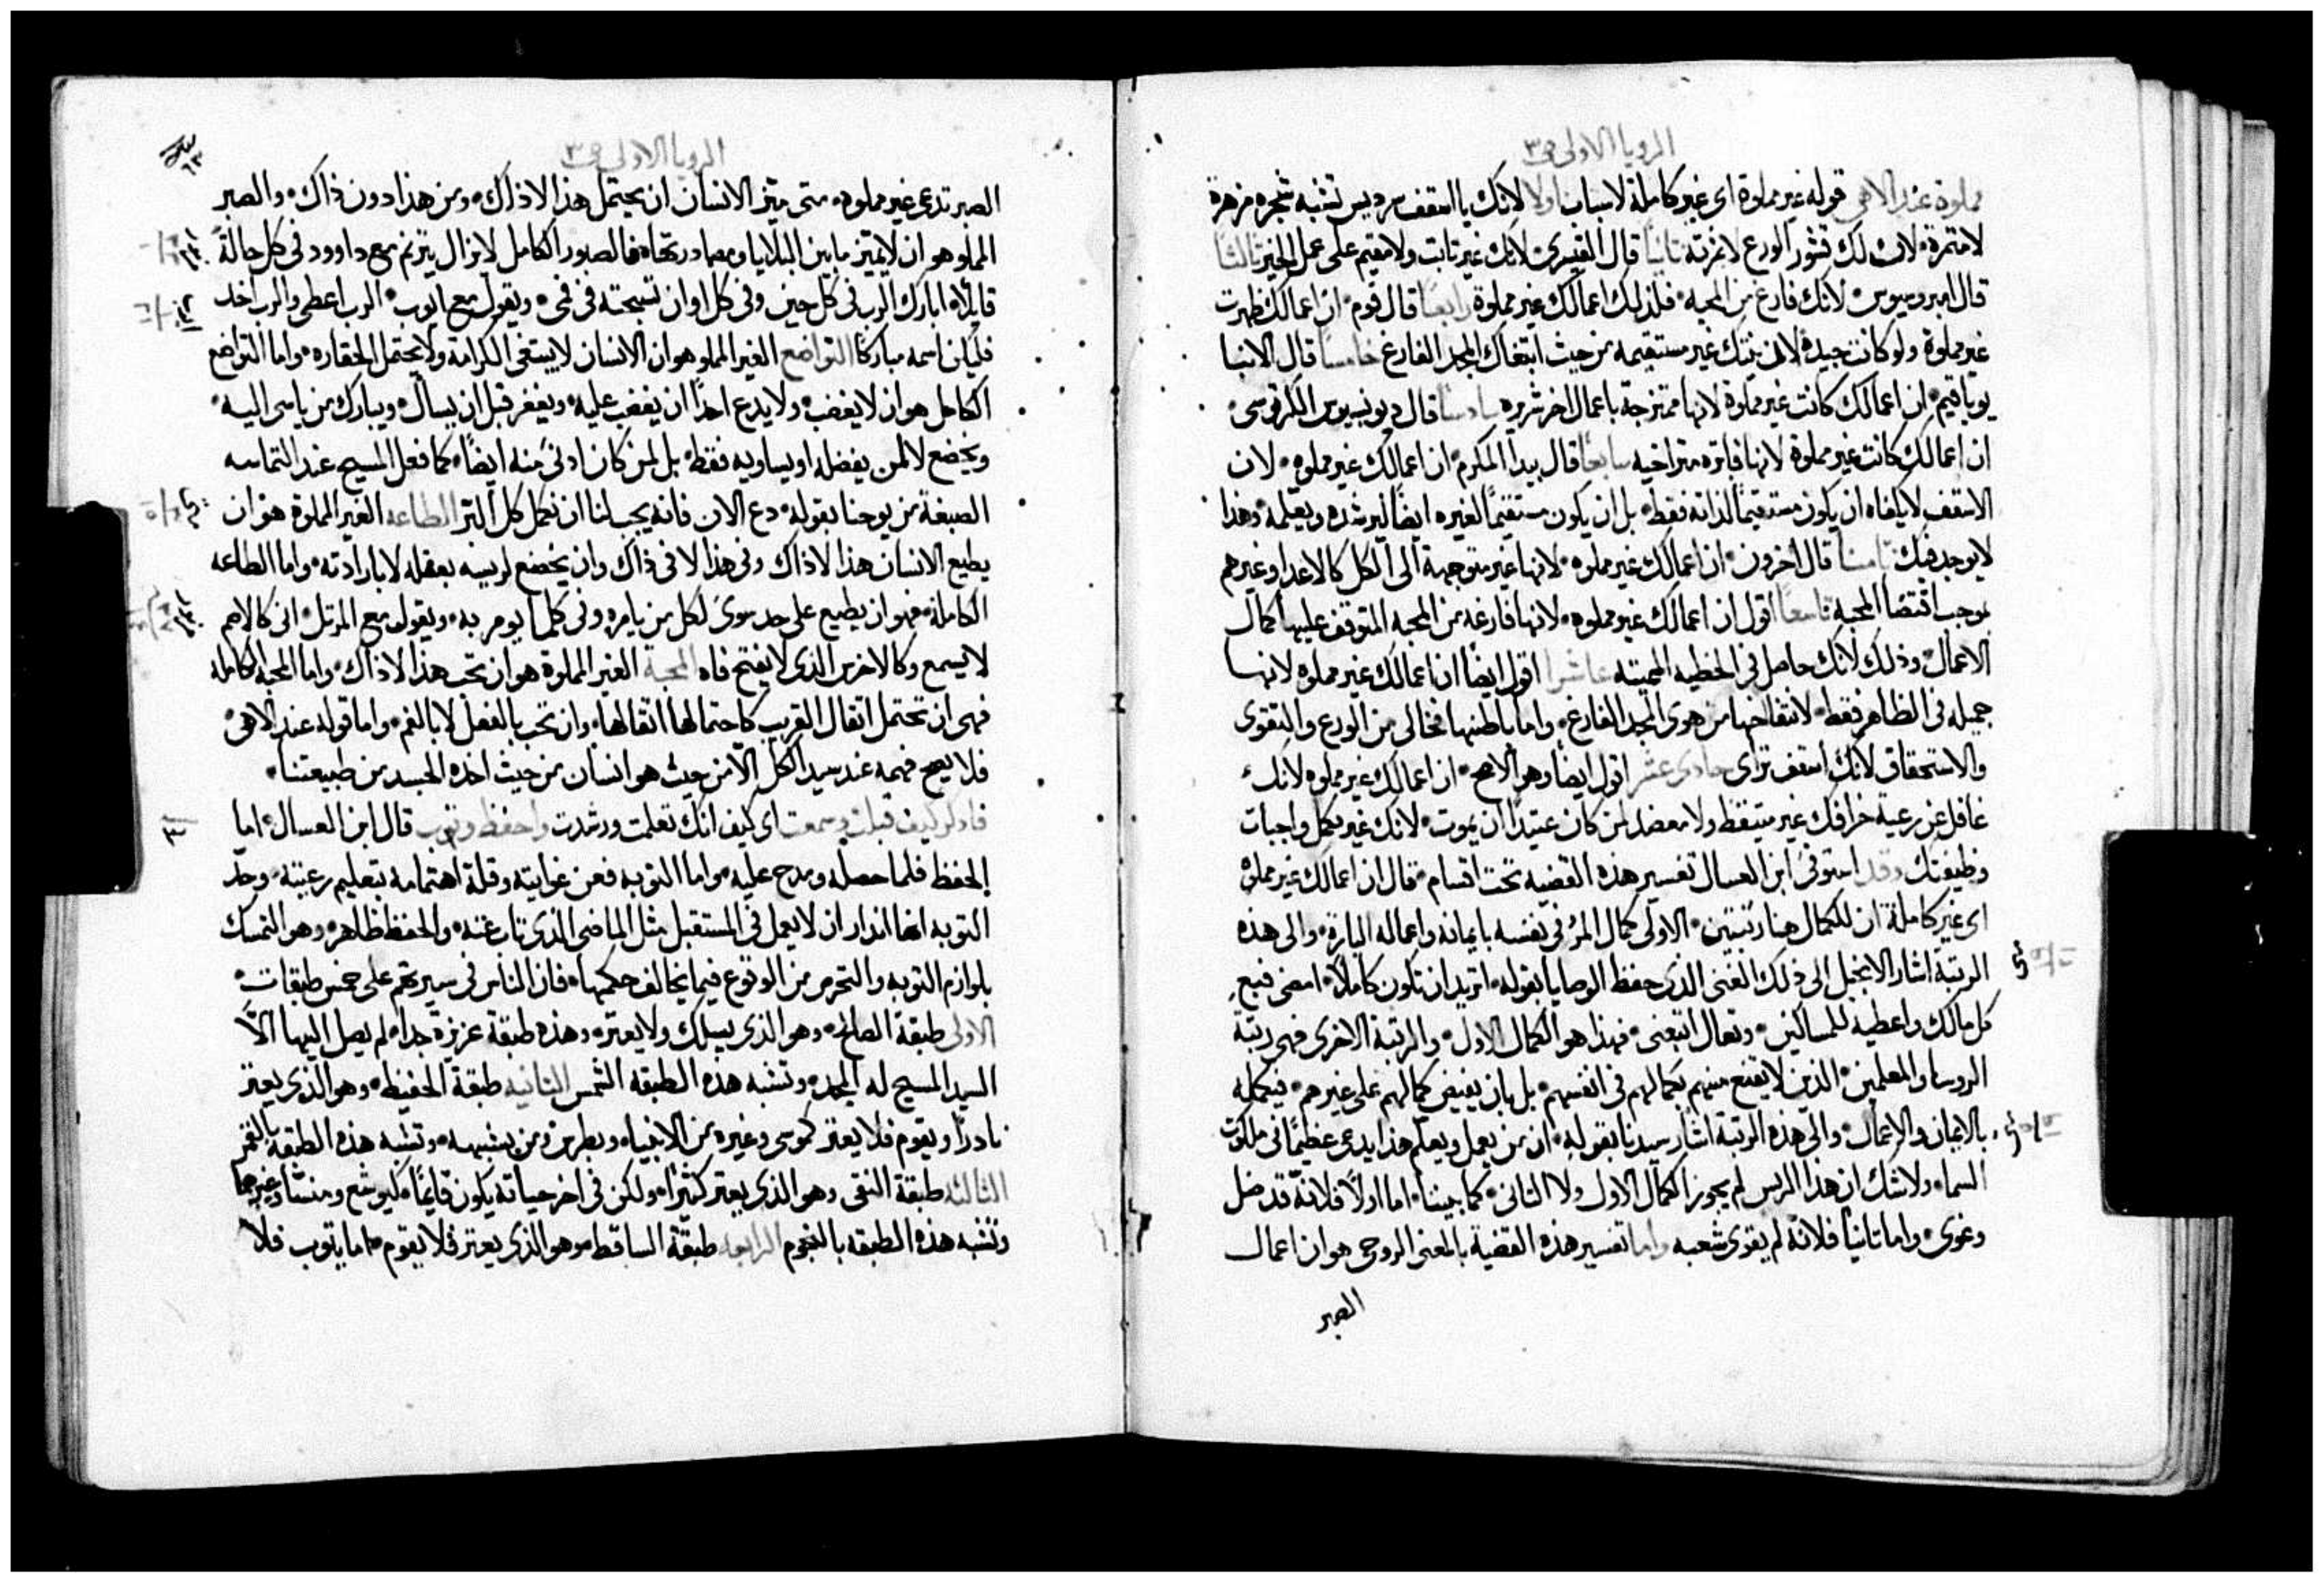 الرويا الاولى ص ٣
مملوة عند الاهى قوله غير مملوة اى غير كاملة لاسباب اولا لانك يا اسقف سرديس تشبه شجره مزهرة
لا مثمرة لان لك قشور الورع لا ثمرته ثانيا قال القيسرى لانك غير ثابت ولا مقيم على عمل الخير ثالثا
قال امبروسيوس لانك فارغ من المحبه فلذلك اعمالك غير مملوة رابعا قال قوم ان اعمالك ظهرت
غير مملوة ولو كانت جيدة لان نيتك غير مستقيمه من حيث ابتغاك المجد الفارغ خامسا قال الانبا
يوياقيم ان اعمالك كانت غير مملوة لانها ممتزجة باعمال اخر شريره سادسا قال ديونيسيوس الكرتوسى
ان اعمالك كانت غير مملوة لانها فاتره متراخيه سابعا قال بيدا المكرم ان اعمالك غير مملوه لان
الاسقف لا يكفاه ان يكون مستقيما لذاته فقط بل ان يكون مستقيما لغيره ايضا ليرشده ويعلمه وهذا
لا يوجد فيك ثامنا قال اخرون ان اعمالك غير مملوه لانها غير متوجهة الى الكل كالاعدا وغيرهم
بموجب اقتضا المحبه تاسعا اقول ان اعمالك غير مملوه لانها فارغه من المحبه المتوقف عليها كمال
الاعمال وذلك لانك حاصل فى الخطيه المميته عاشرا اقول ايضا ان اعمالك غير مملوه لانها
جميله فى الظاهر فقط لانتفاخها من هوى المجد الفارغ واما باطنها فخالى من الورع والتقوى
والاستحقاق لانك اسقف تراى حادى عشر اقول ايضا وهو الاصح ان اعمالك غير مملوه لانك
غافل عن رعية خرافك غير متيقظ ولا معضد لمن كان عتيدا ان يموت لانك غير مكمل واجبات
وظيفتك وقد استوفى ابن العسال تفسير هذه القضيه تحت اقسام فقال ان اعمالك غير مملوة
اى غير كاملة ان للكمال هنا رتبتين الاولى كمال المرء فى نفسه بايمانه واعماله البارة والى هذه
الرتبة اشار الانجيل الى ذلك الغنى الذى حفظ الوصايا بقوله اتريد ان تكون كاملا امضى فبع
كل مالك واعطيه للمساكين وتعال اتبعنى فهذا هو الكمال الاول والرتبة الاخرى فهى رتبة
الروسا والمعلمين الذين لا يقنع منهم بكمالهم فى انفسهم بل بان يفيض كمالهم على غيرهم فيكمله
بالايمان والاعمال والى هذه الرتبة اشار سيدنا بقوله ان من يعمل ويعلم هذا يدعى عظيما فى ملكوت
السما ولا شك ان هذا الريس لم يحوز الكمال الاول ولا الثانى كما بينا اما اولا فلانه قد ضل
وغوى واما ثانيا فلانه لم يقوى شعبه واما تفسير هذه القضية بالمعنى الروحى هو ان اعمال
الصبر
الرويا الاولى ص ٣
٦٣
الصبر تدعى غير مملوه متى ميز الانسان ان يحتمل هذا لا ذاك ومن هذا دون ذاك والصبر
المملو هو ان لا يميز ما بين البلايا ومصادرتها فالصبور الكامل لا يزال يترنم مع داوود فى كل حالة
قايلا ابارك الرب فى كل حين وفى كل اوان تسبحته فى فمى ويقول مع ايوب الرب اعطى والرب اخد
فليكن اسمه مباركا التواضع الغير المملو هو ان الانسان لا يبتغى الكرامة ولا يحتمل الحقاره واما التواضع
الكامل هو ان لا يغضب ولا يدع احدا ان يغضب عليه ويغفر قبل ان يسال ويبارك من ياسى اليه
ويخضع لا لمن يفضله او يساويه فقط بل لمن كان ادنى منه ايضا كما فعل المسيح عند التماسه
الصبغة من يوحنا بقوله دع الان فانه يجب لنا ان نكمل كل البر الطاعه الغير المملوة هو ان
يطيع الانسان هذا لا ذاك وفى هذا لا فى ذاك وان يخضع لريسه بعقله لا بارادته واما الطاعه
الكاملة فهو ان يطيع على حد سوى لكل من يامره وفى كلما يومر به ويقول مع المرتل انى كالاصم
لا يسمع وكالاخرس الذى لا يفتح فاه المحبة الغير المملوة هو ان تحب هذا لا ذاك واما المحبه الكامله
فهى ان تحتمل اثقال القريب كاحتمالها اثقالها وان تحب بالفعل لا بالفم واما قوله عند الاهى
فلا يصح فهمه عند سيد الكل الا من حيث هو انسان من حيث اخذه الجسد من طبيعتنا
٣
فاذكر كيف قبلت وسمعت اى كيف انك تعلمت ورشدت واحفظ وتوب قال ابن العسال اما
الحفظ فلما حصله ومدح عليه واما التوبه فعن غوايته وقلة اهتمامه بتعليم رعيته وحد
التوبه انها انذار ان لا يعمل فى المستقبل مثل الماضى الذى تاب عنه والحفظ ظاهر وهو التمسك
بلوازم التوبه والتحرس من الوقوع فيما يخالف حكمها فان الناس فى سيرتهم على خمس طبقات
الاولى طبقة الصالح وهو الذى يسلك ولا يعتر وهذه طبقة عزيزة جدا لم يصل اليها الا
السيد المسيح له المجد وتشبه هذه الطبقه الشمس الثانيه طبقة الحفيظ وهو الذى يعتر
نادرا ويقوم فلا يعتر كموسى وغيره من الانبياء وبطرس ومن يشبهه وتشبه هذه الطبقه بالقمر
الثالثه طبقة النقى وهو الذى يعتر كثيرا ولكن فى اخر حياته يكون قايما كيوشع ومنسا وغيرهما
وتشبه هذه الطبقه بالنجوم الرابعه طبقة الساقط وهو الذى يعتر فلا يقوم اما يتوب فلا